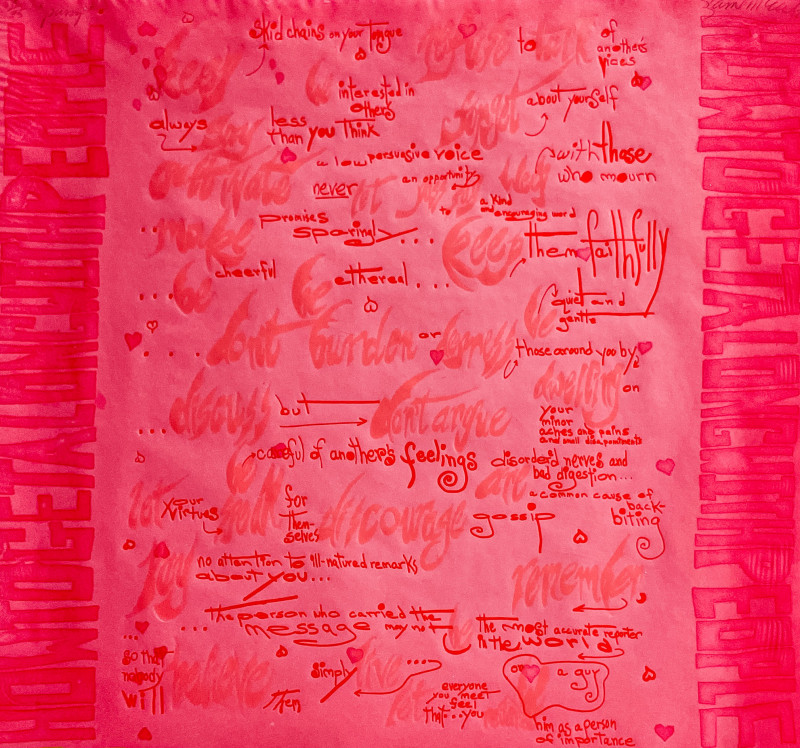 HOW TO GET ALONG WITH PEOPLE
keep skid chains on your tongue refuse to talk of another's vices
be interested in others forget about yourself
always say less than you think
cultivate a low persuasive voice
with those who mourn
never let an opportunity
to a kind and encouraging word
... make promises sparingly... keep them faithfully
... be cheerful be ethereal... be quiet and gentle
.... dont burden or depress those around you by dwelling on
your minor aches and pains and small disapointments
... discuss but dont argue
be careful of another's feelings disorder'd nerves and bad digestion...
are a common cause of back-biting
let your virtues speak for them-selves discourage gossip
pay no attention to ill-natured remarks about you... remember,
... the person who carried the message may not be the most accurate reporter in the world
... so that nobody will believe them
simply live....
let everyone you meet feel that...you
or a guy
him as a person of importance
HOW TO GET ALONG WITH PEOPLE